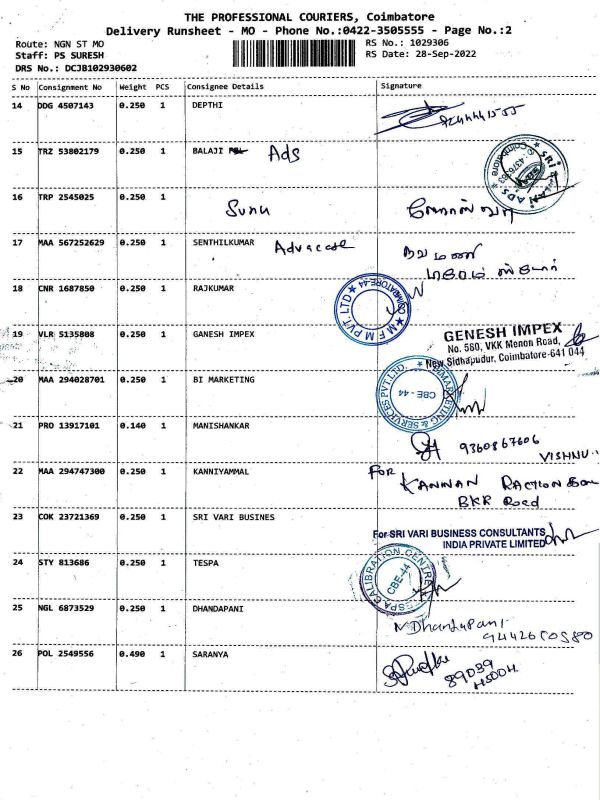 THE PROFESSIONAL COURIERS, Coimbatore
Delivery Runsheet - MO - Phone No.:0422-3505555 - Page No.:2
Route: NGN ST MO
RS No.: 1029306
Staff: PS SURESH
RS Date: 28-Sep-2022
DRS No.: DCJB102930602
S No Consignment No Weight PCS Consignee Details Signature
14 DDG 4507143 0.250 1 DEPTHI
15 TRZ 53802179 0.250 1 BALAJI Ads
SRI
ADS
Coimbatore
16 TRP 2545025 0.250 1
Sunu
17 MAA 567252629 0.250 1 SENTHILKUMAR Advocate
18 CNR 1687850 0.250 1 RAJKUMAR
M F M PVT. LTD
COIMBATORE-44
19 VLR 5135808 0.250 1 GANESH IMPEX
GENESH IMPEX
No. 560, VKK Menon Road,
New Sidhapudur, Coimbatore-641 044
20 MAA 294028701 0.250 1 BI MARKETING
MARKETING & SERVICES PVT.LTD.
CBE - 44
21 PRO 13917101 0.140 1 MANISHANKAR
9360867606
VISHNU
22 MAA 294747300 0.250 1 KANNIYAMMAL
For
KANNAN
BKR Road
23 COK 23721369 0.250 1 SRI VARI BUSINES
For SRI VARI BUSINESS CONSULTANTS
INDIA PRIVATE LIMITED
24 STY 813686 0.250 1 TESPA
TESPA CALIBRATION CENTRE
CBE-44
25 NGL 6873529 0.250 1 DHANDAPANI
N Dhandapani
26 POL 2549556 0.490 1 SARANYA
89039